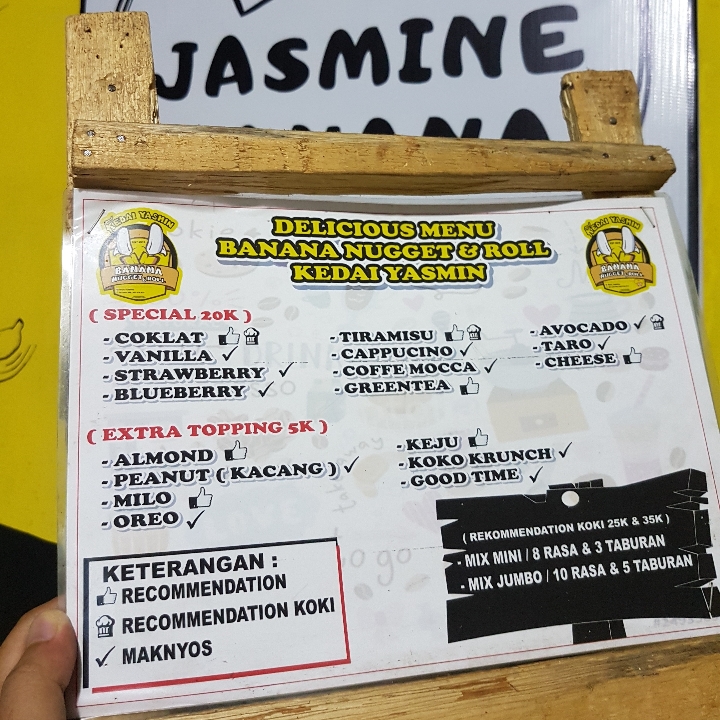 JASMINE
BANANA
KEDAI YASMIN
BANANA
NUGGET & ROLL
DELICIOUS MENU
BANANA NUGGET & ROLL
KEDAI YASMIN
KEDAI YASMIN
BANANA
NUGGET & ROLL
( SPECIAL 20K )
- COKLAT
- VANILLA
- STRAWBERRY
- BLUEBERRY
- TIRAMISU
- CAPPUCINO
- COFFE MOCCA
- GREENTEA
- AVOCADO
- TARO
- CHEESE
( EXTRA TOPPING 5K )
- ALMOND
- PEANUT ( KACANG )
- MILO
- OREO
- KEJU
- KOKO KRUNCH
- GOOD TIME
KETERANGAN :
RECOMMENDATION
RECOMMENDATION KOKI
MAKNYOS
( REKOMMENDATION KOKI 25K & 35K )
- MIX MINI / 8 RASA & 3 TABURAN
- MIX JUMBO / 10 RASA & 5 TABURAN